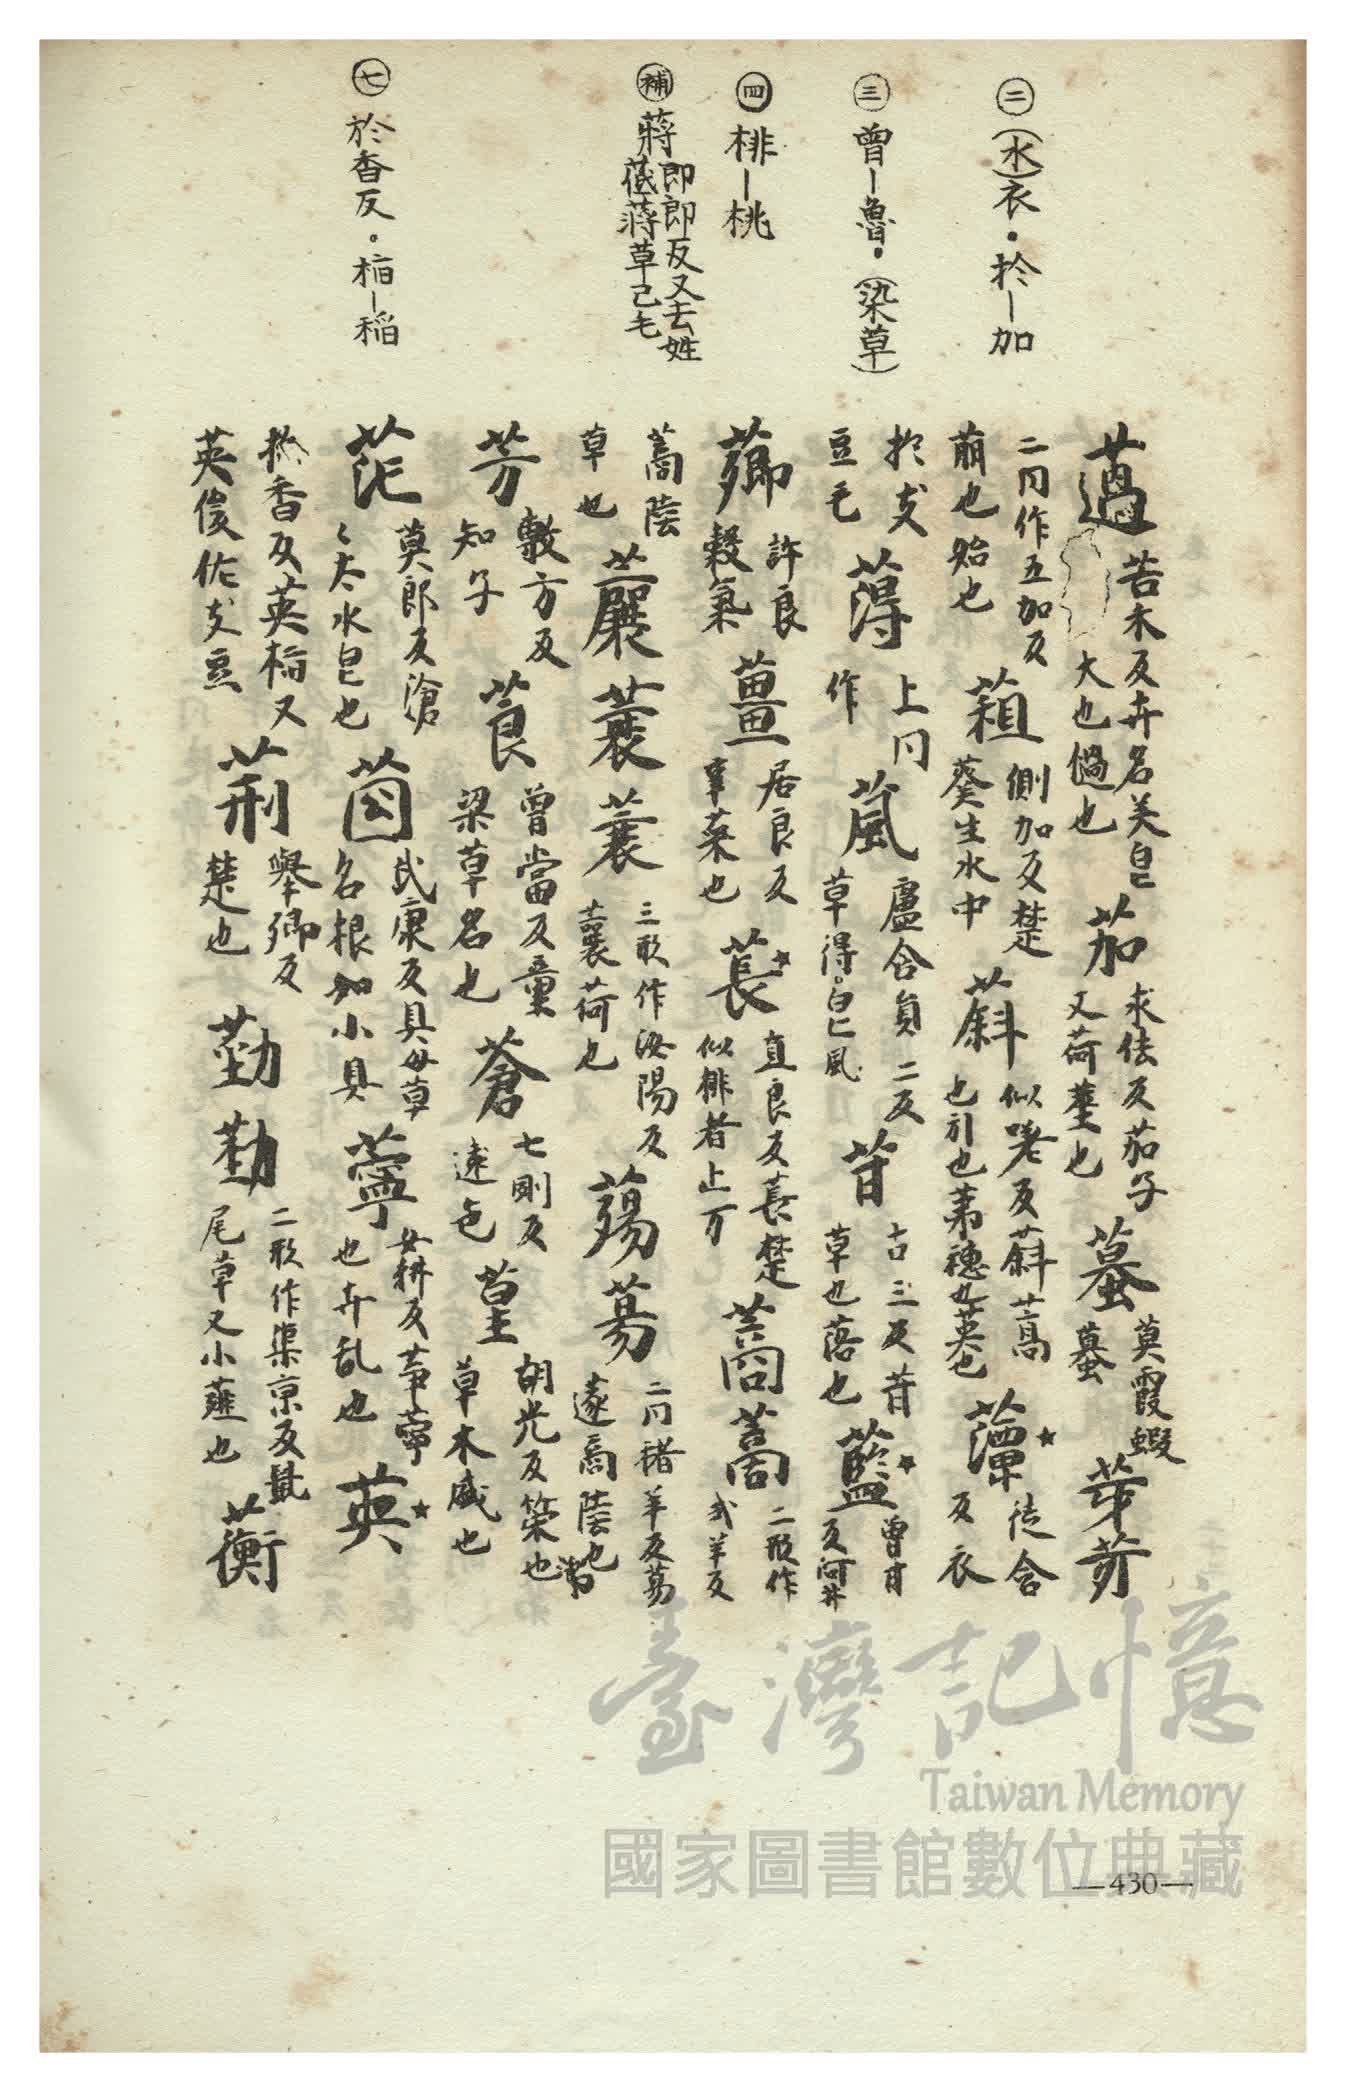 ㊁(水)衣·扵—加
㊂曾—魯·(染草)
㊃棑—桃
㊭蔣即郎反又去姓
菰蔣草己毛
㊆於香反·栢—稲
薖苦禾反卉名美皃大也㗻也茄求佉反茄子又荷莖也蟇莫霞蝦蟇芽䓉
二同作五加反萠也始也葅側加反楚葵生水中䔑似嗟反䔑蒿也引也苐穗也英也藫徒含反衣
扵支豆毛䔒上同作葻盧含負二反草得皃風苷古三反苷草也落也藍曾甘反河井
薌許良反穀氣薑居良反辛菜也萇直良反萇楚似棑者止万蔏䔥二形作式羊反
蒿蔭草也蘘蘘蘘三形作汝陽反蘘荷也蕩募二同褚羊反募遂蔏蔭也
芳敷方反知子莨曾當反童梁草名也蒼七剛反逺色葟胡光反築也草木盛也
茫莫郎反滄〻大水皃也茵武庚反貝母草名根如小貝薴女耕反䓔薴也卉乱也英
扵香反英栢又英俊佐支豆荊舉卿反楚也葝葝二形作渠京反鼠尾草又小䪥也蘅
臺灣記憶
Taiwan Memory
國家圖書館數位典藏
—430—